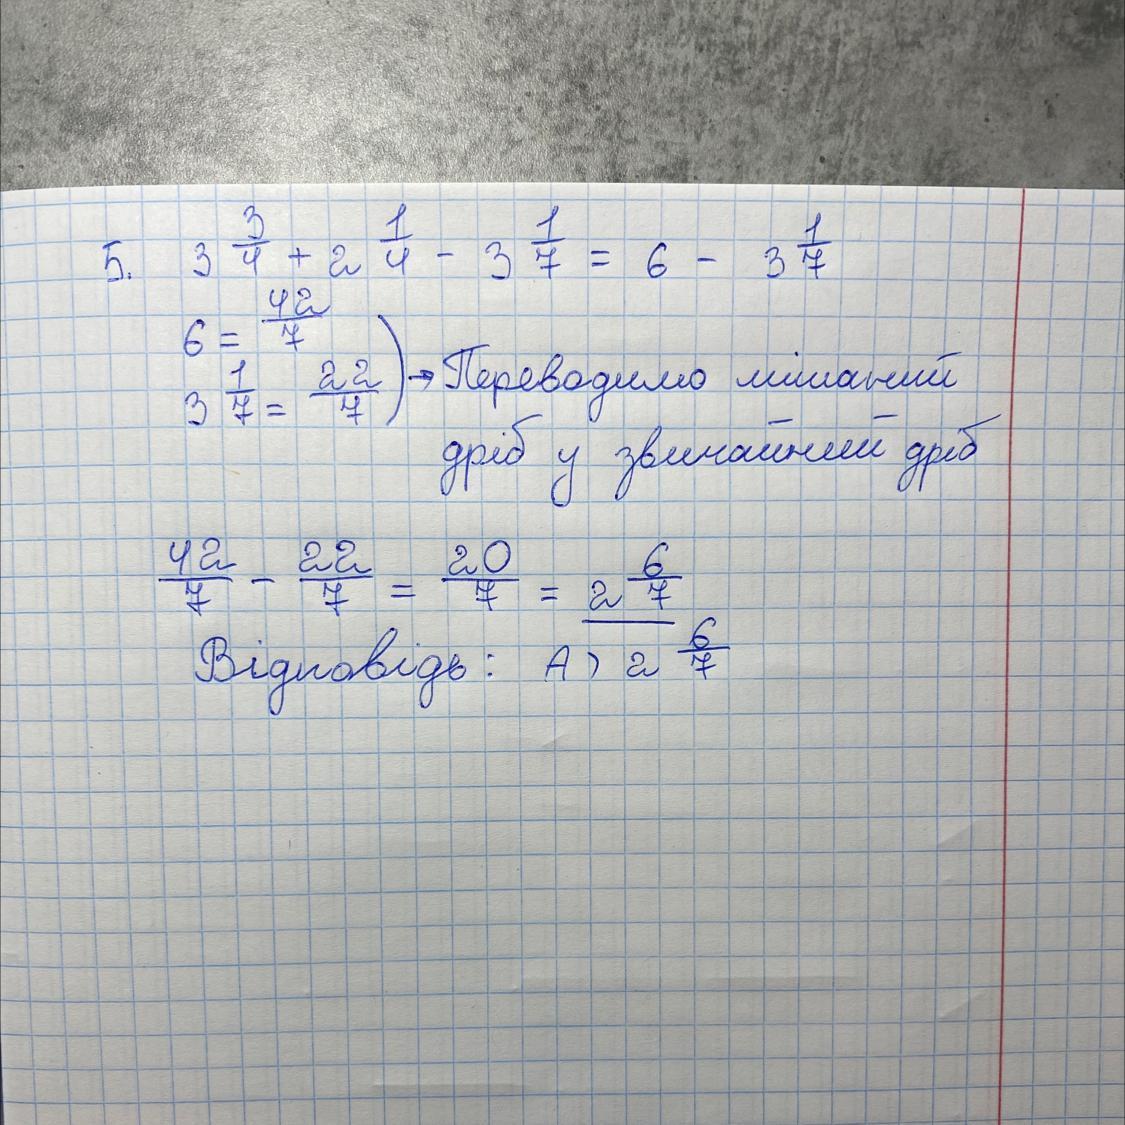 5. 3 3/4 + 2 1/4 - 3 1/7 = 6 - 3 1/7
6 = 42/7
3 1/7 = 22/7 ) → Переводимо мішаний
дріб у звичайний дріб
42/7 - 22/7 = 20/7 = 2 6/7
Відповідь: А) 2 6/7